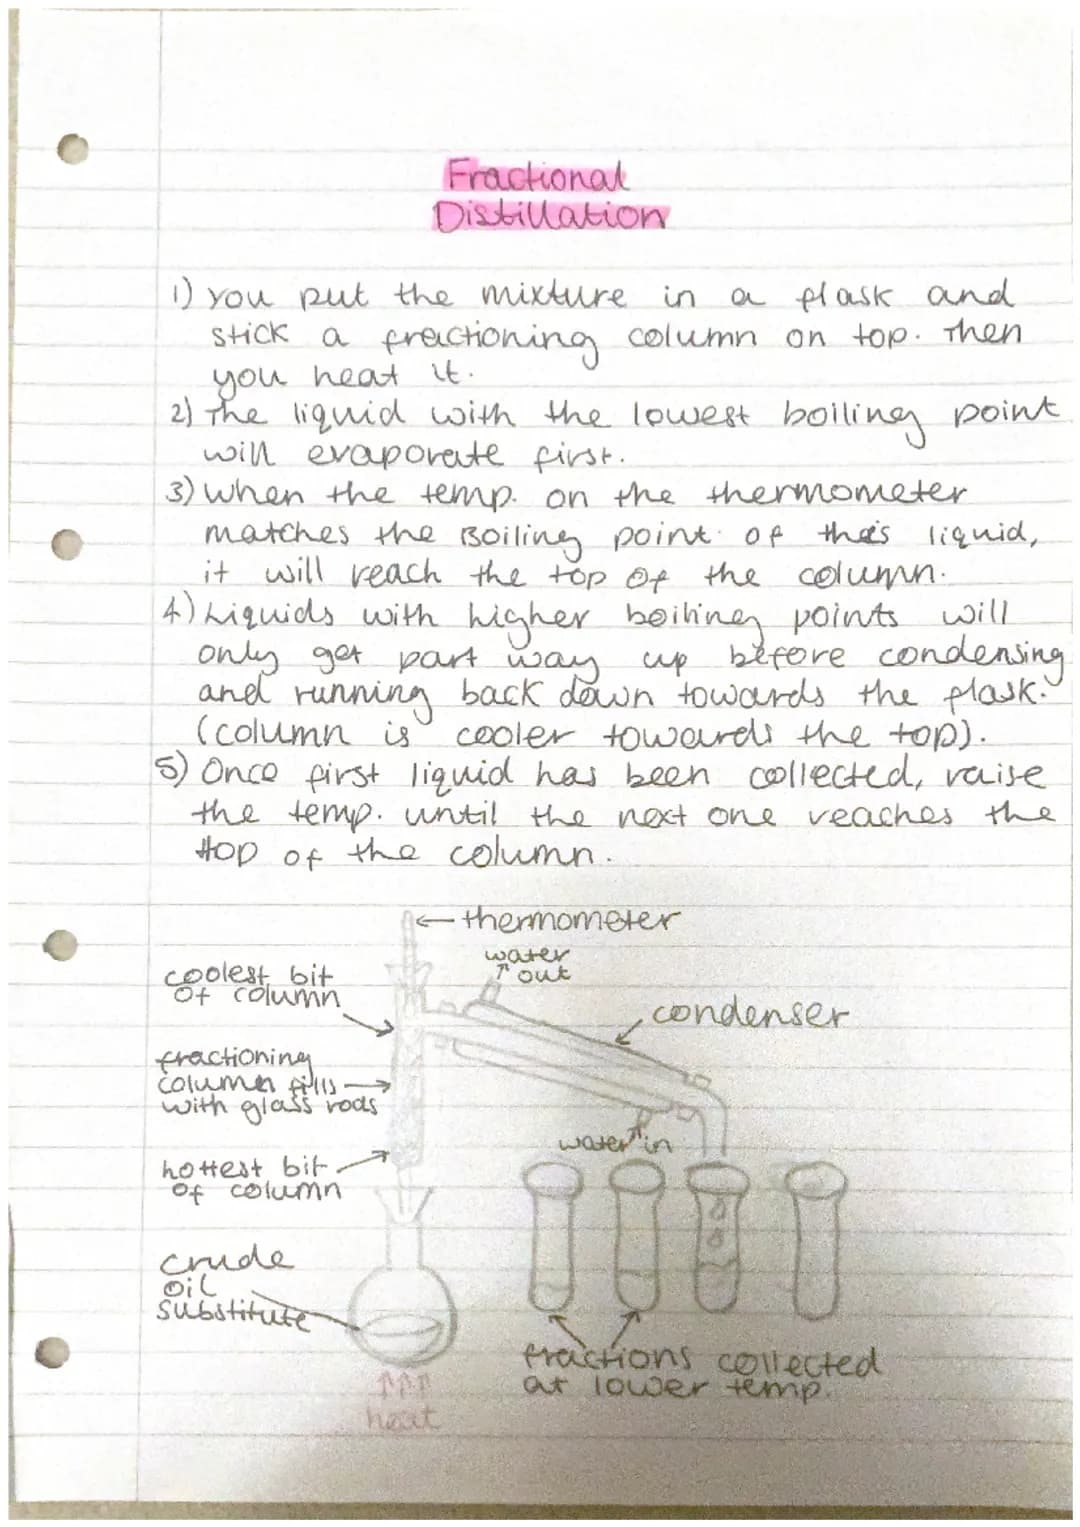 Fractional
Distillation
1) You put the mixture in a flask and
stick a fractioning column on top. Then
you heat it.
2) The liquid with the lowest boiling point
will evaporate first.
3) When the temp. on the thermometer
matches the Boiling point of this liquid,
it will reach the top of the column.
4) Liquids with higher boiling points will
only get part way up before condensing
and running back down towards the flask.
(column is cooler towards the top).
5) Once first liquid has been collected, raise
the temp. until the next one reaches the
top of the column.
thermometer
water
out
coolest bit
of column
condenser
fractioning
column fills
with glass rods
water in
hottest bit
of column
crude
oil
substitute
fractions collected
at lower temp.
heat